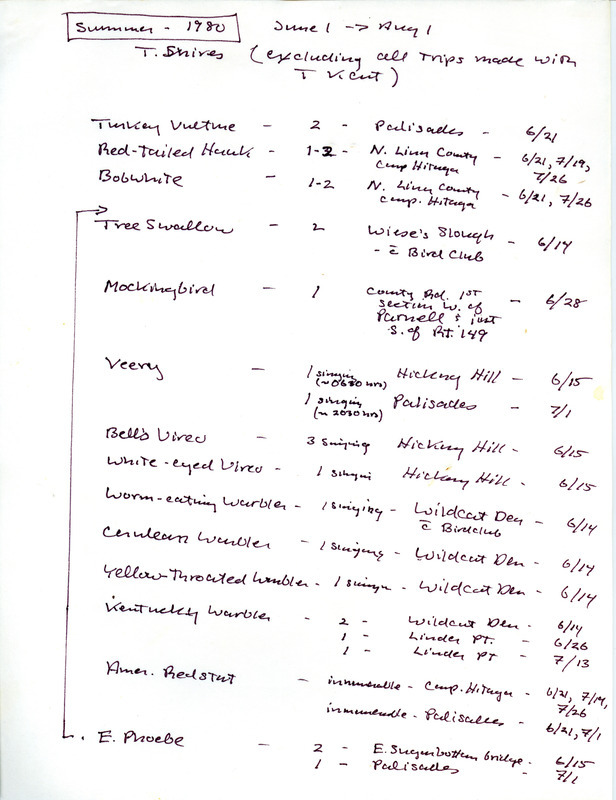 Summer - 1980 June 1 -> Aug 1
T. Shires (excluding all Trips made with
T Kent)
Turkey Vulture - 2 - Palisades - 6/21
Red-tailed Hawk - 1-2 - N. Linn County - 6/21, 7/19,
Camp Hitaga 7/26
Bobwhite - 1-2 N. Linn County - 6/21, 7/26
Camp. Hitaga
Tree Swallow - 2 Wiese's Slough - 6/14
- c̄ Bird Club
Mockingbird - 1 County Rd. 1st - 6/28
section W. of
Parnell & just
S. of Rt. 149
Veery - 1 singing Hickory Hill - 6/15
(~0630 hrs)
1 singing Palisades - 7/1
(~2030 hrs)
Bell's Vireo - 3 singing Hickory Hill - 6/15
White-eyed Vireo - 1 singing Hickory Hill - 6/15
Worm-eating Warbler - 1 singing - Wildcat Den - 6/14
c̄ Birdclub
Cerulean Warbler - 1 singing - Wildcat Den - 6/14
Yellow-Throated Warbler - 1 singing - Wildcat Den - 6/14
Kentucky Warbler - 2 - Wildcat Den - 6/14
1 - Linder Pt. - 6/26
1 - Linder Pt - 7/13
Amer. Redstart - innumerable - Camp. Hitaga - 6/21, 7/19,
7/26
innumerable - Palisades - 6/21, 7/1
E. Phoebe - 2 - E. Sugarbottom bridge - 6/15
1 - Palisades - 7/1